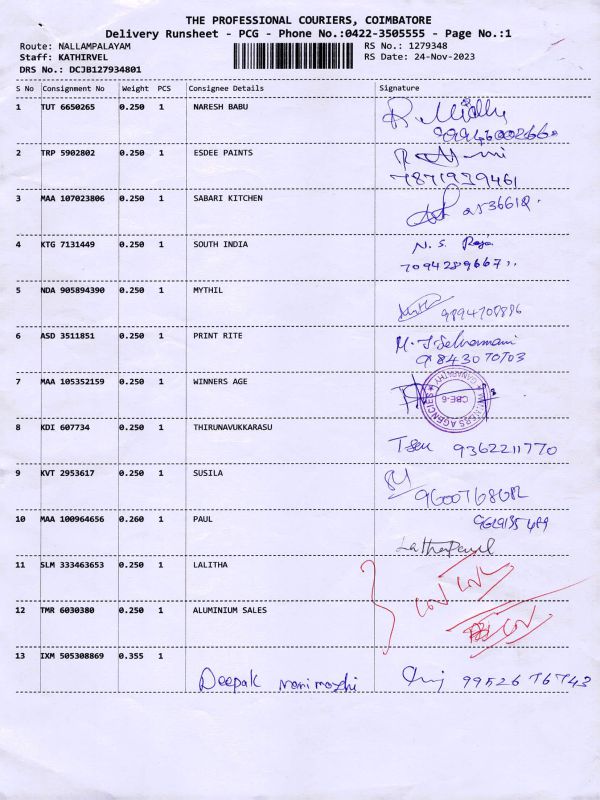 THE PROFESSIONAL COURIERS, COIMBATORE
Delivery Runsheet - PCG - Phone No.:0422-3505555 - Page No.:1
Route: NALLAMPALAYAM RS No.: 1279348
Staff: KATHIRVEL RS Date: 24-Nov-2023
DRS No.: DCJB127934801
S No Consignment No Weight PCS Consignee Details Signature
1 TUT 6650265 0.250 1 NARESH BABU
2 TRP 5902802 0.250 1 ESDEE PAINTS
7871939461
3 MAA 107023806 0.250 1 SABARI KITCHEN
4 KTG 7131449 0.250 1 SOUTH INDIA N.S. Raja
7094289667
5 NDA 905894390 0.250 1 MYTHIL
9894708886
6 ASD 3511851 0.250 1 PRINT RITE M. J Selvamani
9843070703
7 MAA 105352159 0.250 1 WINNERS AGE
WINNERS AGENCIES GANAPATHY CBE-6
8 KDI 607734 0.250 1 THIRUNAVUKKARASU
9362211770
9 KVT 2953617 0.250 1 SUSILA
10 MAA 100964656 0.260 1 PAUL
LathaPaul
11 SLM 333463653 0.250 1 LALITHA
12 TMR 6030380 0.250 1 ALUMINIUM SALES
13 IXM 505308869 0.355 1
Deepak Manimozhi 99526 76743